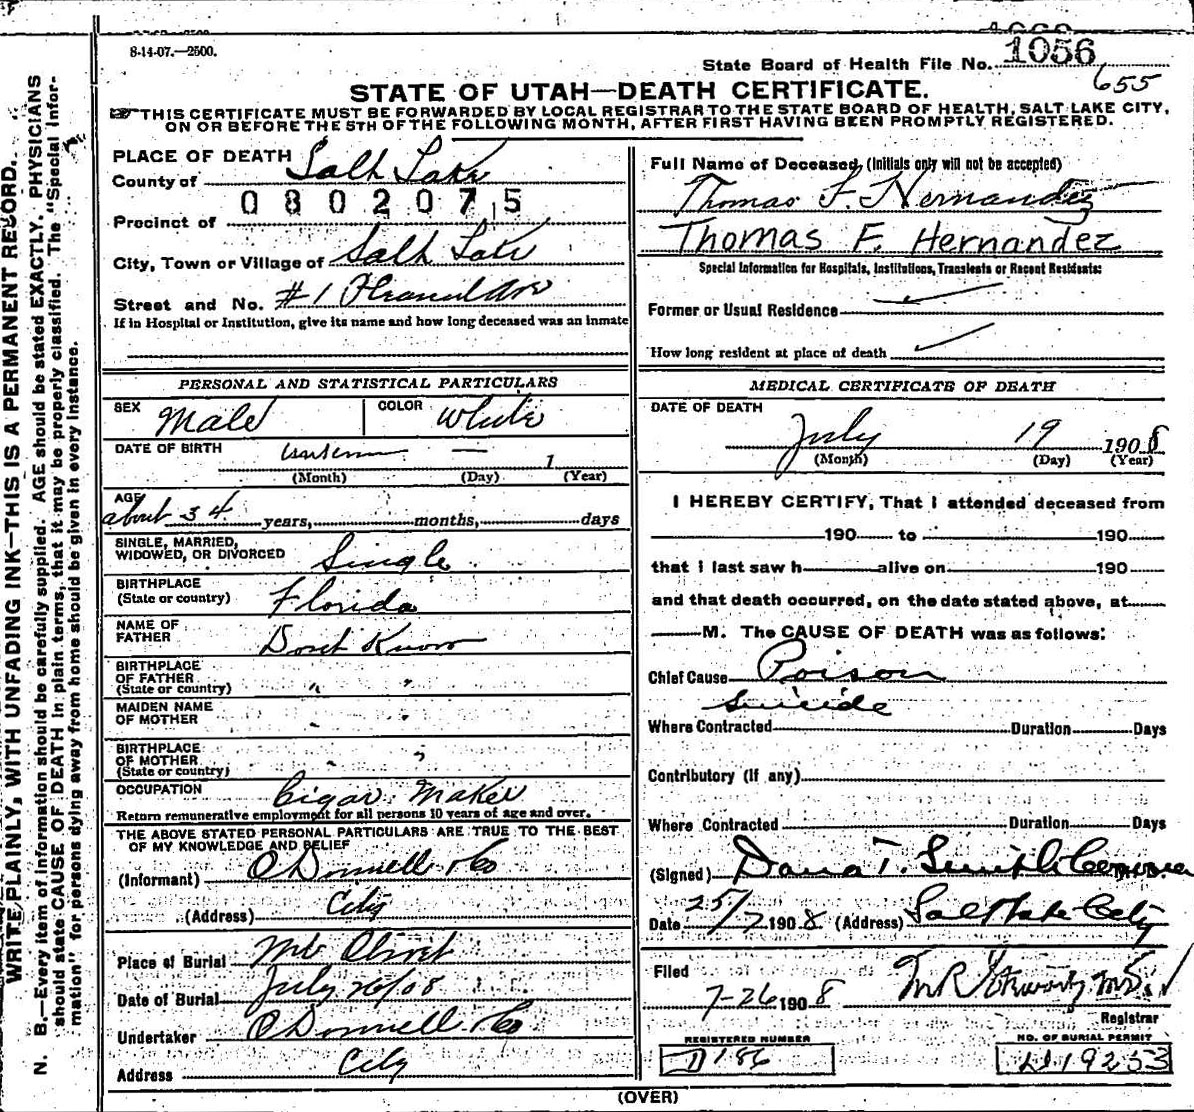 8-14-07.—2500.
State Board of Health File No. 1056
655
STATE OF UTAH—DEATH CERTIFICATE.
THIS CERTIFICATE MUST BE FORWARDED BY LOCAL REGISTRAR TO THE STATE BOARD OF HEALTH, SALT LAKE CITY,
ON OR BEFORE THE 5TH OF THE FOLLOWING MONTH, AFTER FIRST HAVING BEEN PROMPTLY REGISTERED.
WRITE PLAINLY, WITH UNFADING INK—THIS IS A PERMANENT RECORD.
N. B.—Every item of information should be carefully supplied. AGE should be stated EXACTLY. PHYSICIANS
should state CAUSE OF DEATH in plain terms, that it may be properly classified. The "Special Infor-
mation" for persons dying away from home should be given in every instance.
PLACE OF DEATH
County of Salt Lake
0802075
Precinct of
City, Town or Village of Salt Lake
Street and No. #1
If in Hospital or Institution, give its name and how long deceased was an inmate
Full Name of Deceased, (Initials only will not be accepted)
Thomas F. Hernandez
Thomas F. Hernandez
Special Information for Hospitals, Institutions, Transients or Recent Residents:
Former or Usual Residence
How long resident at place of death
PERSONAL AND STATISTICAL PARTICULARS
SEX Male COLOR White
DATE OF BIRTH — 1
(Month) (Day) (Year)
AGE about 34 years, months, days
SINGLE, MARRIED,
WIDOWED, OR DIVORCED Single
BIRTHPLACE
(State or country) Florida
NAME OF
FATHER Dont Know
BIRTHPLACE
OF FATHER
(State or country) " "
MAIDEN NAME
OF MOTHER " "
BIRTHPLACE
OF MOTHER
(State or country) " "
OCCUPATION Cigar Maker
Return remunerative employment for all persons 10 years of age and over.
THE ABOVE STATED PERSONAL PARTICULARS ARE TRUE TO THE BEST
OF MY KNOWLEDGE AND BELIEF
(Informant) O'Donnell & Co
(Address) City
Place of Burial Mt Olivet
Date of Burial July 26/08
Undertaker O'Donnell & Co
Address City
MEDICAL CERTIFICATE OF DEATH
DATE OF DEATH
July 19 1908
(Month) (Day) (Year)
I HEREBY CERTIFY, That I attended deceased from
190 to 190
that I last saw h alive on 190
and that death occurred, on the date stated above, at
M. The CAUSE OF DEATH was as follows:
Chief Cause Poison
Suicide
Where Contracted Duration Days
Contributory (if any)
Where Contracted Duration Days
(Signed) Dana T. Smith
Date 25/7 1908 (Address) Salt Lake City
Filed
7-26 1908
Registrar
REGISTERED NUMBER
D 186
NO. OF BURIAL PERMIT
19253
(OVER)